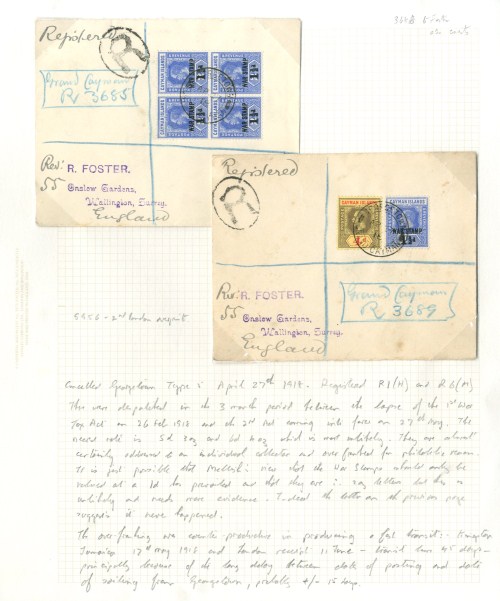 Registered
R
Grand Cayman
R 3685
CAYMAN ISLANDS
WAR STAMP
1½d
Rev: R. FOSTER.
55 Onslow Gardens,
Wallington, Surrey.
England
Registered
R
CAYMAN ISLANDS
CAYMAN ISLANDS
WAR STAMP
1½d
Rev: R. FOSTER.
55 Onslow Gardens,
Wallington, Surrey.
England
Grand Cayman
R 3689
Cancelled Georgetown Type April 27th 1918. Registered R1(H) and R6(M)
They were despatched in the 3 month period between the lapse of the 1st War
Tax Act on 26 Feb 1918 and the 2nd not coming into force on 27th
nearest rate is 5d and 6d which is not unlikely. They are almost
certainly addressed to an individual collector and over franked for philatelic reasons
It is just possible that view that the War Stamps should only be
valued at a 1d has prevailed and that they are letters but this is
unlikely and needs more evidence. Indeed the letter on the previous page
suggests it never happened.
The over-franking was counter-productive in producing a fast transit: Kingston
Jamaica 17th May 1918 and London receipt 11 June - transit time 45 days -
principally because of the long delay between date of posting and date
of sailing from Georgetown, probably +/- 15 days.